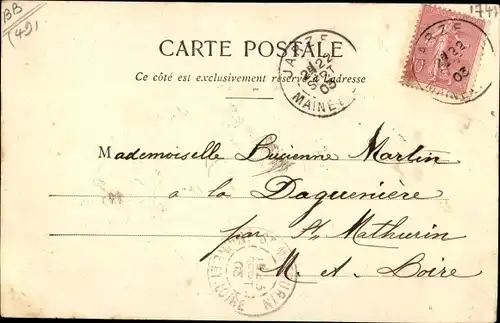 BB
(49)
1747
CARTE POSTALE
Ce côté est exclusivement réservé à l'adresse
JARZÉ
22
SEPT
03
MAINE
JARZÉ
22
03
MAINE
Mademoiselle Lucienne Martin
a la Daguenière
par St Mathurin
M. et Loire
ST MATHURIN
LOIRE